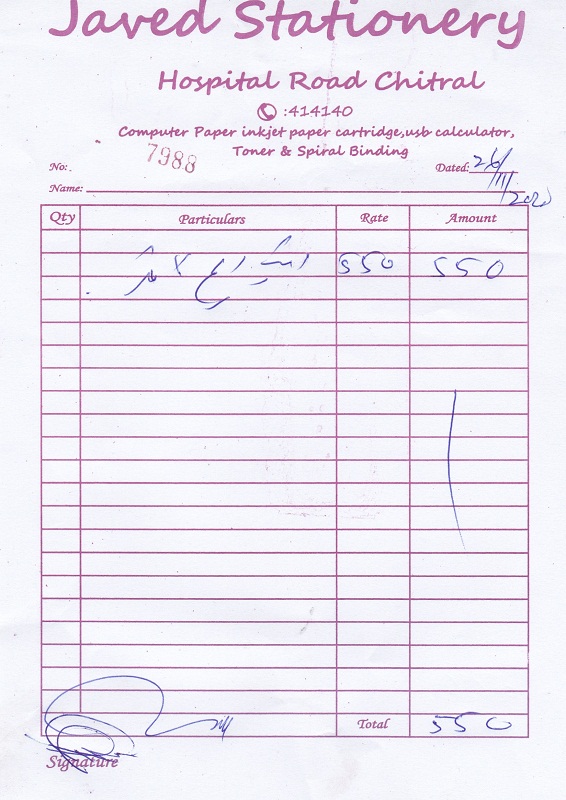 Javed Stationery
Hospital Road Chitral
:414140
Computer Paper inkjet paper cartridge,usb calculator,
Toner & Spiral Binding
No:. 7988 Dated: 26/11/202
Name:
Qty Particulars Rate Amount
550 550
Total 550
Signature